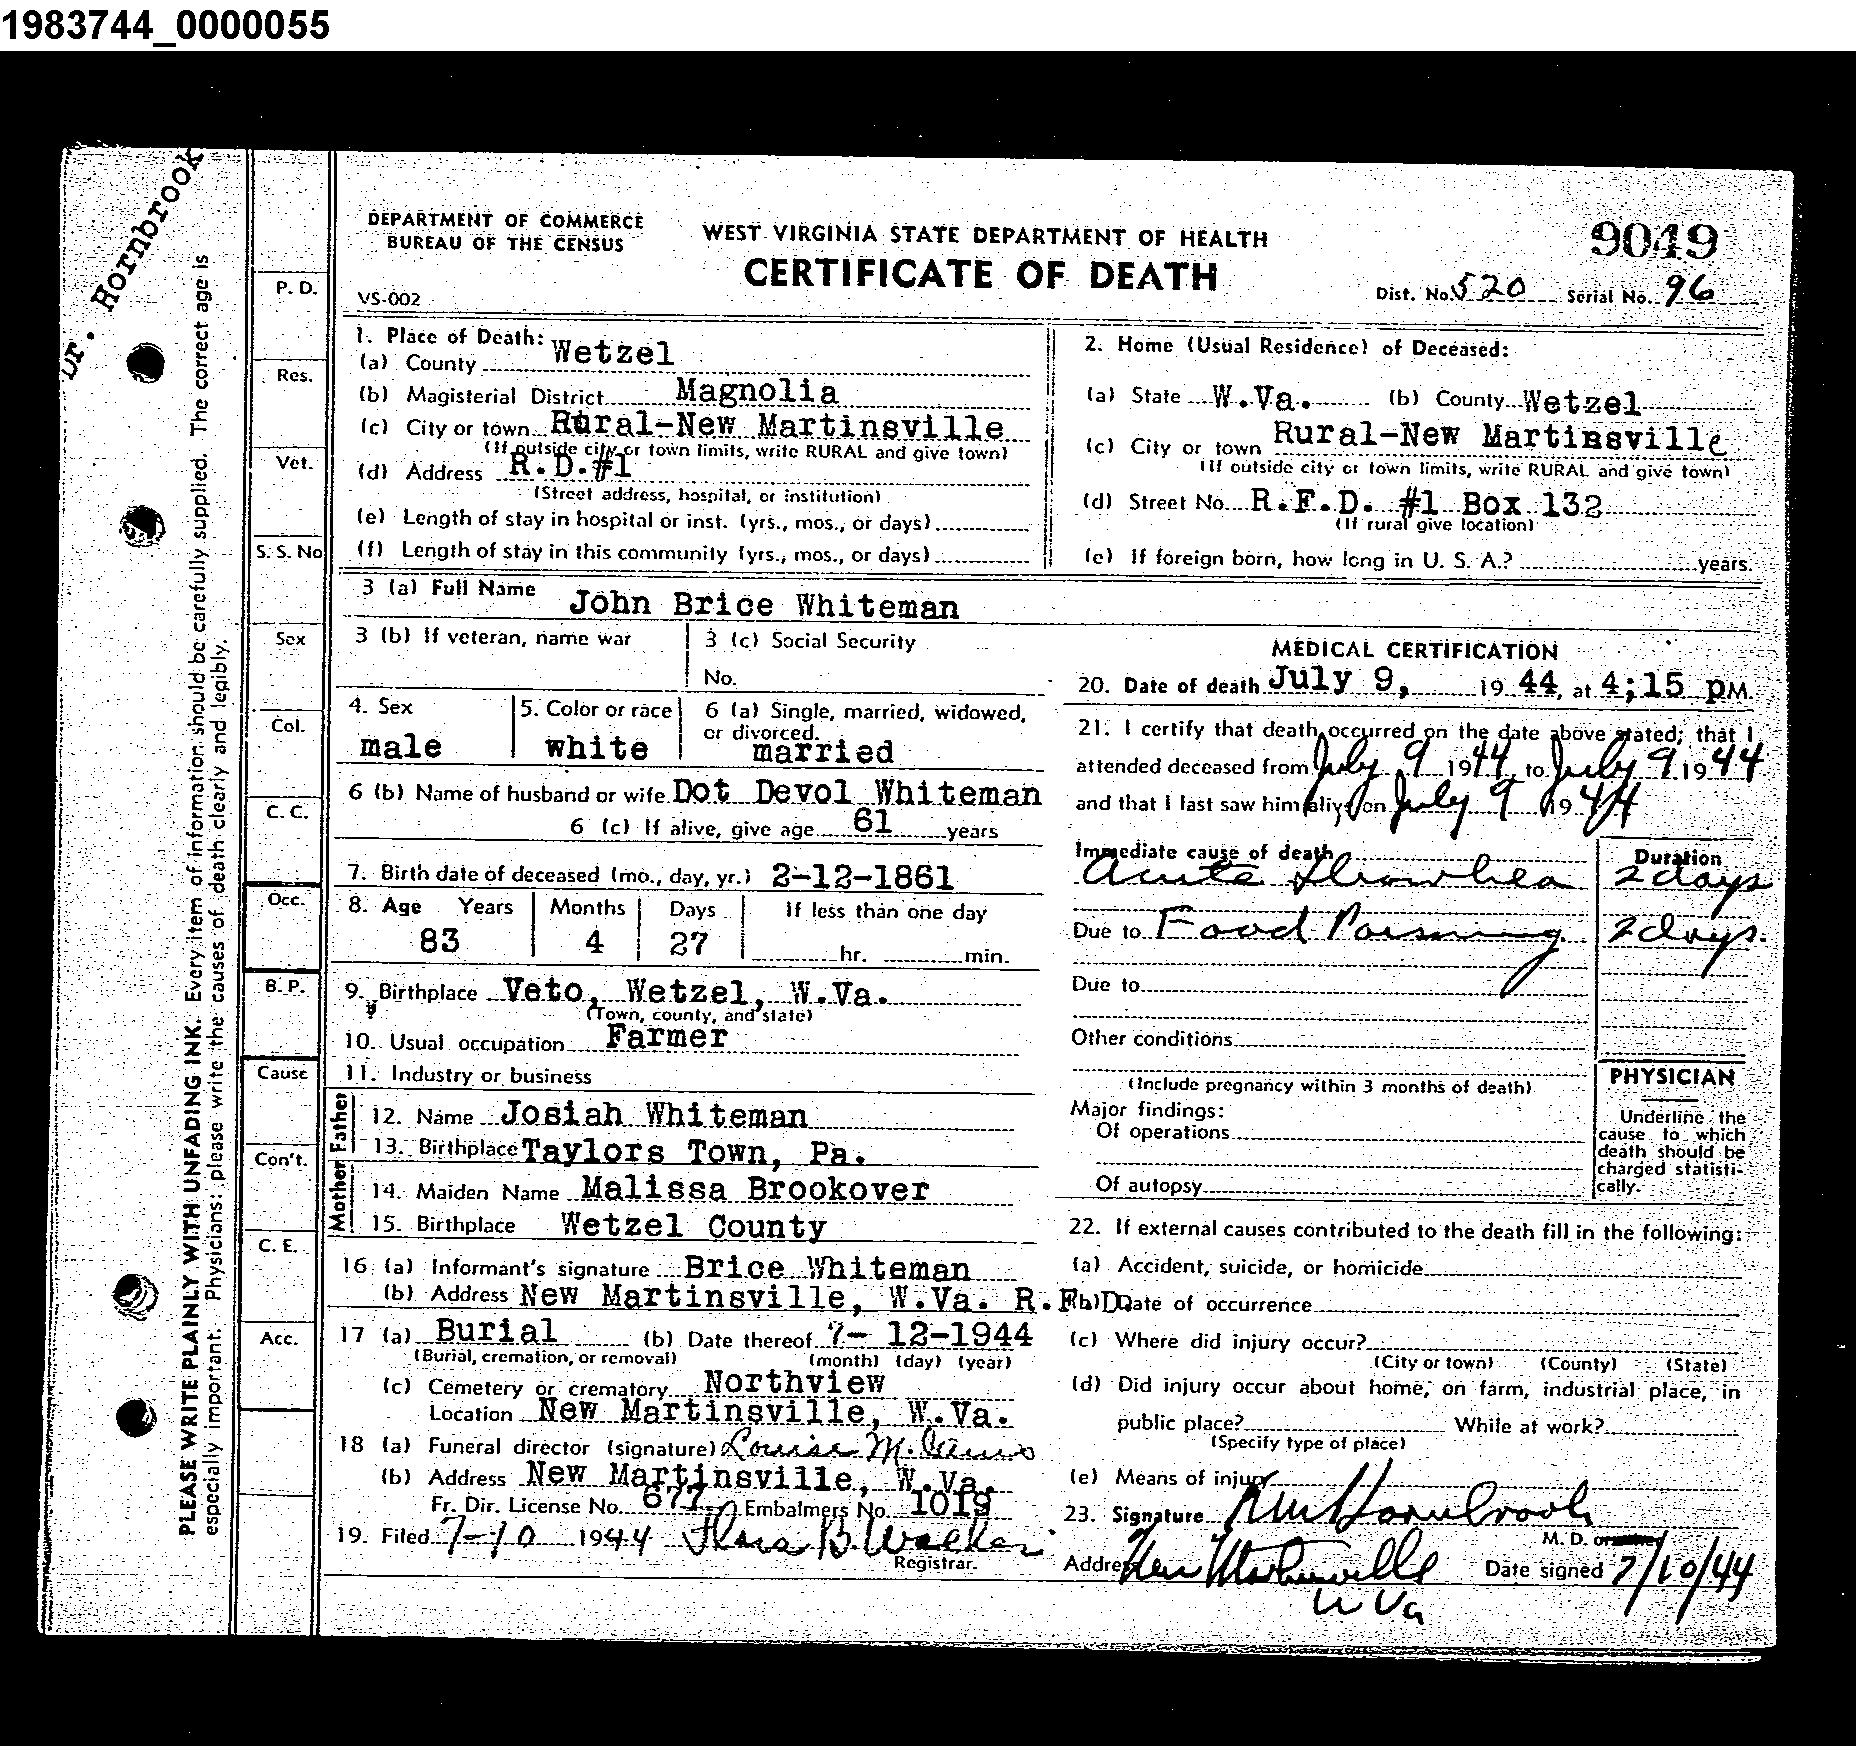 1983744_0000055
Dr. Hornbrook
PLEASE WRITE PLAINLY WITH UNFADING INK. Every item of information should be carefully supplied. The correct age is
especially important. Physicians: please write the causes of death clearly and legibly.
P. D.
Res.
Vet.
S. S. No
Sex
Col.
C. C.
Occ.
B. P.
Cause
Con't.
C. E.
Acc.
DEPARTMENT OF COMMERCE
BUREAU OF THE CENSUS
VS-002
WEST VIRGINIA STATE DEPARTMENT OF HEALTH
CERTIFICATE OF DEATH
9049
Dist. No. 520 Serial No. 96
1. Place of Death:
(a) County Wetzel
(b) Magisterial District Magnolia
(c) City or town Rural-New Martinsville
(If outside city or town limits, write RURAL and give town)
(d) Address R.D.#1
(Street address, hospital, or institution)
(e) Length of stay in hospital or inst. (yrs., mos., or days)
(f) Length of stay in this community (yrs., mos., or days)
2. Home (Usual Residence) of Deceased:
(a) State W.Va. (b) County Wetzel
(c) City or town Rural-New Martinsville
(If outside city or town limits, write RURAL and give town)
(d) Street No. R.F.D. #1 Box 132
(If rural give location)
(e) If foreign born, how long in U. S. A.? years.
3 (a) Full Name John Brice Whiteman
3 (b) If veteran, name war
3 (c) Social Security
No.
4. Sex
male
5. Color or race
white
6 (a) Single, married, widowed,
or divorced.
married
6 (b) Name of husband or wife Dot Devol Whiteman
6 (c) If alive, give age 61 years
7. Birth date of deceased (mo., day, yr.) 2-12-1861
8. Age Years Months Days If less than one day
83 4 27 hr. min.
9. Birthplace Veto, Wetzel, W.Va.
(Town, county, and state)
10. Usual occupation Farmer
11. Industry or business
Father
12. Name Josiah Whiteman
13. Birthplace Taylors Town, Pa.
Mother
14. Maiden Name Malissa Brookover
15. Birthplace Wetzel County
16 (a) Informant's signature Brice Whiteman
(b) Address New Martinsville, W.Va. R.F.D.
17 (a) Burial (b) Date thereof 7- 12-1944
(Burial, cremation, or removal) (month) (day) (year)
(c) Cemetery or crematory Northview
Location New Martinsville, W.Va.
18 (a) Funeral director (signature) Louise M.
(b) Address New Martinsville, W.Va.
Fr. Dir. License No. 677 Embalmers No. 1019
19. Filed 7-10 1944 B. Walker
Registrar.
MEDICAL CERTIFICATION
20. Date of death July 9, 19 44, at 4;15 pM.
21. I certify that death occurred on the date above stated; that I
attended deceased from July 9 1944, to July 9 1944
and that I last saw him alive on July 9 1944
Immediate cause of death Duration
Acute Diarrhea 2 days
Due to Food Poisoning 2 days.
Due to
Other conditions
(Include pregnancy within 3 months of death)
Major findings:
Of operations
Of autopsy
PHYSICIAN
Underline the
cause to which
death should be
charged statisti-
cally.
22. If external causes contributed to the death fill in the following:
(a) Accident, suicide, or homicide
(b) Date of occurrence
(c) Where did injury occur?
(City or town) (County) (State)
(d) Did injury occur about home, on farm, industrial place, in
public place? While at work?
(Specify type of place)
(e) Means of injury
23. Signature Hornbrook
M. D. or
Address New Martinsville Date signed 7/10/44
W Va